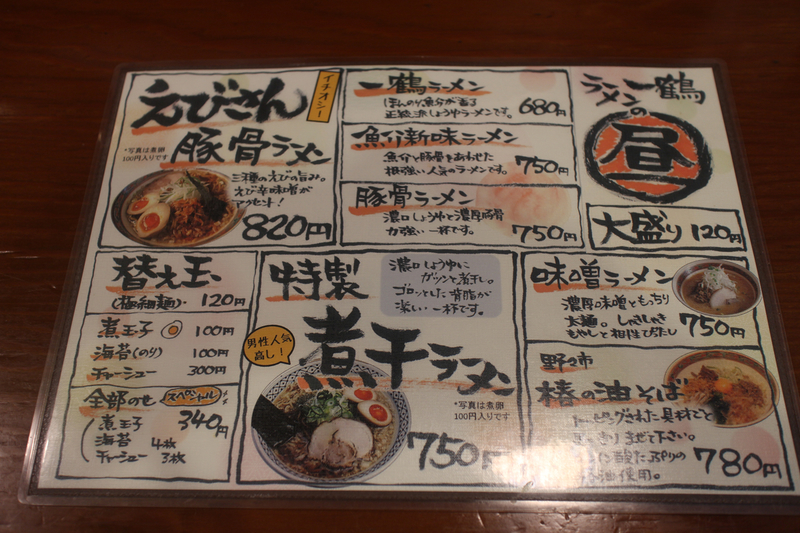 えびさん
イチオシ!
豚骨ラーメン
*写真は煮卵
100円入りです
三種のえびの旨み。
えび辛味噌が
アクセント!
820円
一鶴ラーメン
ほんのり魚分が香る
正統派しょうゆラーメンです。
680円
魚介新味ラーメン
魚介と豚骨をあわせた
根強い人気のラーメンです。
750円
豚骨ラーメン
濃口しょうゆと濃厚豚骨
力強い一杯です。
750円
ラーメン一鶴
の
昼
大盛り 120円
替え玉
(極細麺)・120円
煮玉子 100円
海苔(のり) 100円
チャーシュー 300円
全部のせ スペシャル
340円
煮玉子
海苔 4枚
チャーシュー 3枚
特製
濃口しょうゆに
ガツンと煮干し。
ゴロッとした背脂が
深い一杯です。
男性人気
高し!
煮干ラーメン
*写真は煮卵
100円入りです
750円
味噌ラーメン
濃厚味噌ともっちり
太麺。しゃきしゃき
もやしと相性ぴったし
750円
野々市
椿の油そば
トッピングされた具材ごと
まぜて下さい。
酸たっぷりの
油使用。
780円